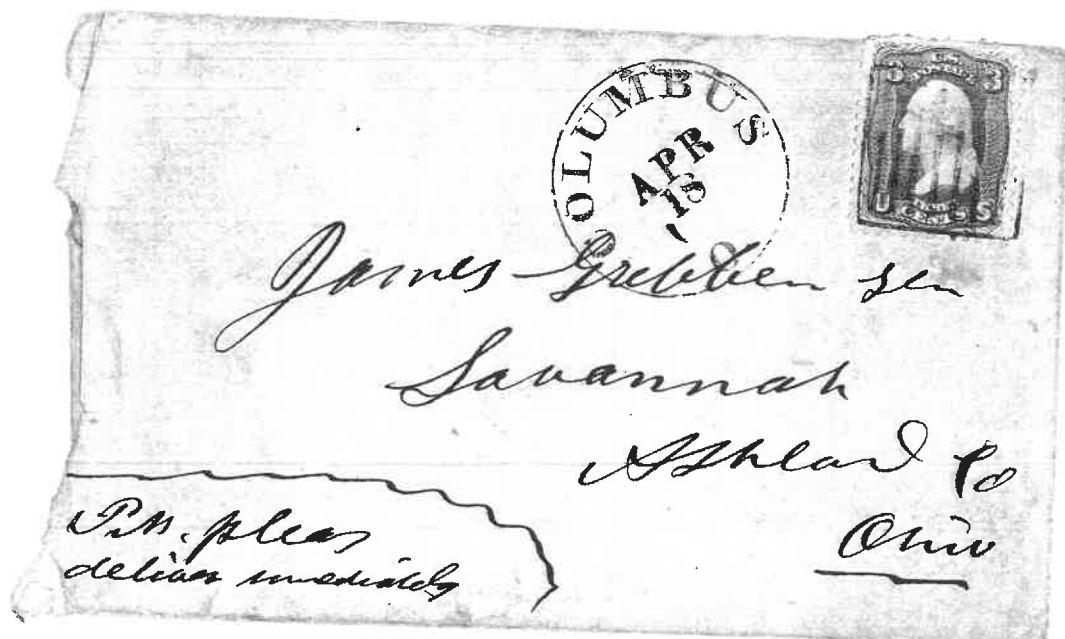 COLUMBUS
APR
18
3 3
U S
James Gribben Sen
Savannah
Ashland Co
Ohio
P.M. pleas
deliver imediately